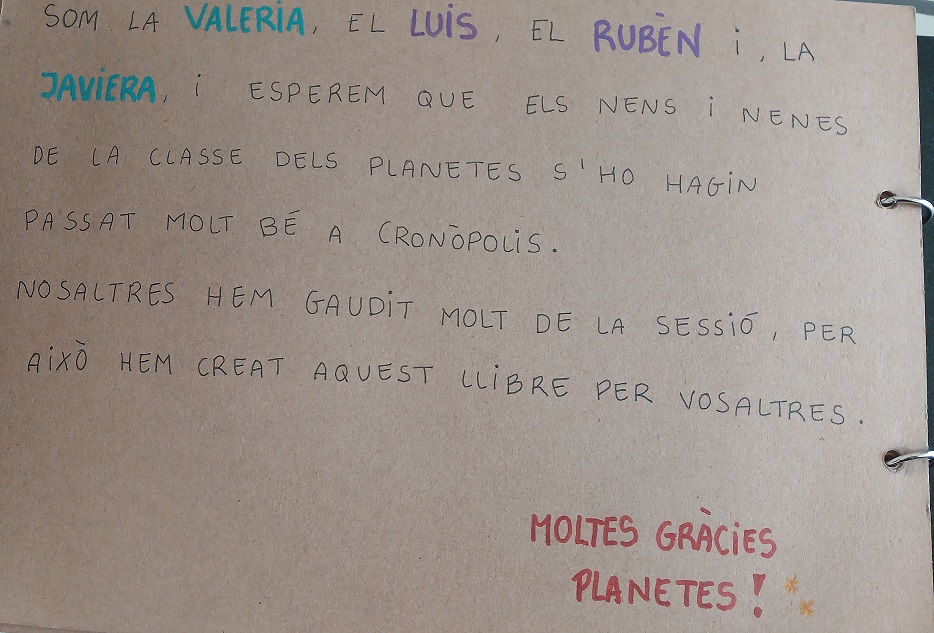 SOM LA VALERIA, EL LUIS, EL RUBÈN i, LA
JAVIERA, i ESPEREM QUE ELS NENS i NENES
DE LA CLASSE DELS PLANETES S'HO HAGIN
PASSAT MOLT BÉ A CRONÒPOLIS.
NOSALTRES HEM GAUDIT MOLT DE LA SESSIÓ, PER
AIXÒ HEM CREAT AQUEST LLIBRE PER VOSALTRES.
MOLTES GRÀCIES
PLANETES!